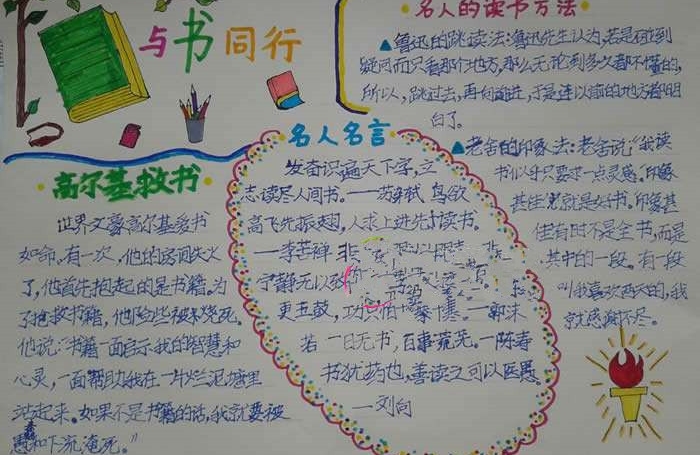 与书同行
名人的读书方法
▲鲁迅的跳读法:鲁迅先生认为,若是碰到
疑问而只看那个地方,那么无论到多久都不懂的,
所以,跳过去,再向前进,于是连以前的地方都明
白了。
▲老舍的印象法:老舍说"我读
书似乎只要求一点灵感。"印象
甚佳"便是好书。印象甚
佳有时不是全书,而是
其中的一段。有一段
"叫我喜欢两天的,我
就感谢不尽。
高尔基救书
世界文豪高尔基爱书
如命,有一次,他的房间失火
了,他首先抱起的是书籍。为
了抢救书籍,他险些被烧死。
他说:"书籍一面启示我的智慧和
心灵,一面帮助我在一片烂泥塘里
站起来。如果不是书籍的话,我就要被
愚蠢和下流淹死。"
名人名言
发奋识遍天下字,立
志读尽人间书。——苏轼 鸟欲
高飞先振翅,人求上进先读书。
——李苦禅 非
宁静无以致
更五鼓,功
若一日无书,百事荒芜。——陈寿
书犹药也,善读之可以医愚。
——刘向